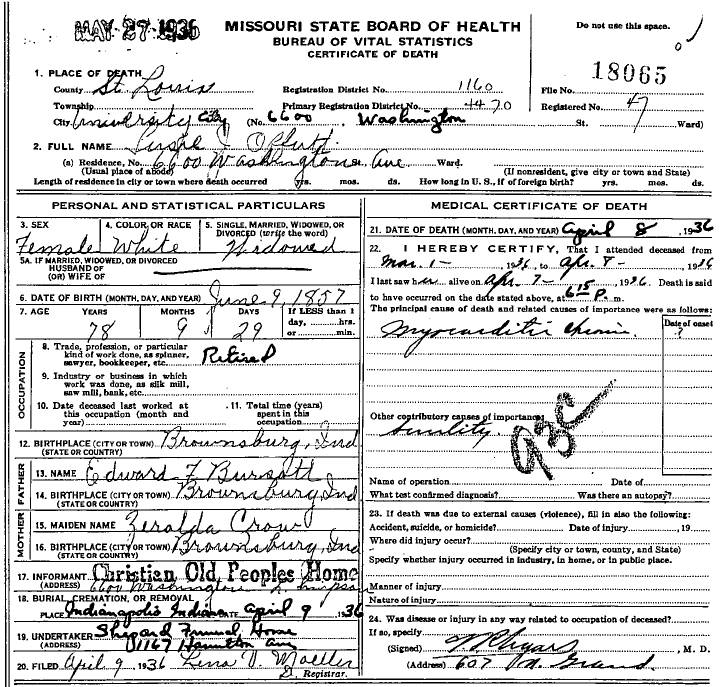 MAY 27 1936
MISSOURI STATE BOARD OF HEALTH
BUREAU OF VITAL STATISTICS
CERTIFICATE OF DEATH
Do not use this space.
1. PLACE OF DEATH
County St. Louis Registration District No. 1160 File No. 18065
Township Primary Registration District No. 4470 Registered No. 47
City University City (No. 6600 Washington St. Ward)
2. FULL NAME
(a) Residence, No. 6600 Washington St. Ave Ward.
(Usual place of abode) (If nonresident, give city or town and State)
Length of residence in city or town where death occurred yrs. mos. ds. How long in U. S., if of foreign birth? yrs. mos. ds.
PERSONAL AND STATISTICAL PARTICULARS
3. SEX 4. COLOR OR RACE 5. SINGLE, MARRIED, WIDOWED, OR DIVORCED (write the word)
Female White Widowed
5A. IF MARRIED, WIDOWED, OR DIVORCED
HUSBAND OF
(OR) WIFE OF
6. DATE OF BIRTH (MONTH, DAY, AND YEAR) June 9, 1857
7. AGE YEARS MONTHS DAYS If LESS than 1 day, hrs. or min.
78 9 29
OCCUPATION
8. Trade, profession, or particular kind of work done, as spinner, sawyer, bookkeeper, etc. Retired
9. Industry or business in which work was done, as silk mill, saw mill, bank, etc.
10. Date deceased last worked at this occupation (month and year) 11. Total time (years) spent in this occupation
12. BIRTHPLACE (CITY OR TOWN) Brownsburg, Ind
(STATE OR COUNTRY)
FATHER
13. NAME Edward F
14. BIRTHPLACE (CITY OR TOWN) Brownsburg, Ind
(STATE OR COUNTRY)
MOTHER
15. MAIDEN NAME Zeralda Crow
16. BIRTHPLACE (CITY OR TOWN) Brownsburg, Ind
(STATE OR COUNTRY)
17. INFORMANT Christian Old Peoples Home
(ADDRESS) 6600 Washington
18. BURIAL, CREMATION, OR REMOVAL
PLACE Indianapolis Indiana DATE April 9 1936
19. UNDERTAKER Shepard Funeral Home
(ADDRESS) 1167 Hamilton Ave
20. FILED April 9 1936 Lena V. Moeller
Registrar.
MEDICAL CERTIFICATE OF DEATH
21. DATE OF DEATH (MONTH, DAY, AND YEAR) April 8, 1936
22. I HEREBY CERTIFY, That I attended deceased from
Mar. 1 - 1936, to Apr. 8 - 1936
I last saw her alive on Apr. 7 - 1936. Death is said
to have occurred on the date stated above, at 6 15 P. m.
The principal cause of death and related causes of importance were as follows:
Date of onset
Myocarditis Chronic ?
Other contributory causes of importance:
Senility.
93C
Name of operation Date of
What test confirmed diagnosis? Was there an autopsy?
23. If death was due to external causes (violence), fill in also the following:
Accident, suicide, or homicide? Date of injury , 19
Where did injury occur?
(Specify city or town, county, and State)
Specify whether injury occurred in industry, in home, or in public place.
Manner of injury
Nature of injury
24. Was disease or injury in any way related to occupation of deceased?
If so, specify
(Signed) M. D.
(Address) 607 N. Grand.